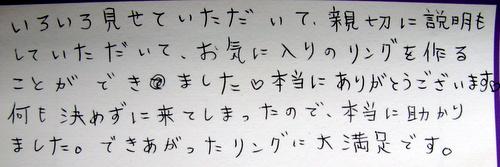 いろいろ見せていただいて、親切に説明も
していただいて、お気に入りのリングを作る
ことができました♡本当にありがとうございます♡
何も決めずに来てしまったので、本当に助かり
ました。できあがったリングに大満足です。